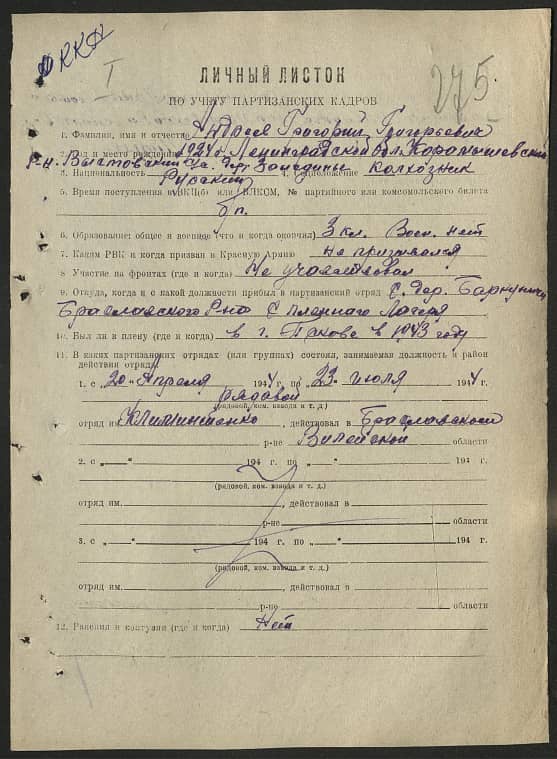 РККА
I
275
ЛИЧНЫЙ ЛИСТОК
ПО УЧЕТУ ПАРТИЗАНСКИХ КАДРОВ
1. Фамилия, имя и отчество Григорий Григорьевич
2. Год и место рождения 1924 г. Ленинградской обл. Карамышевский
р-н. с/с. дер.
3. Национальность Русский 4. Соцположение колхозник
5. Время поступления в ВКП(б) или ВЛКСМ, № партийного или комсомольского билета
б/п.
6. Образование: общее и военное (что и когда окончил) 3 кл. Воен. нет
7. Каким РВК и когда призван в Красную Армию не призывался
8 Участие на фронтах (где и когда) Не участвовал
9. Откуда, когда и с какой должности прибыл в партизанский отряд с дер.
Браславского р-на с пленного лагеря
10. Был ли в плену (где и когда) в г. Пскове в 1943 году
11. В каких партизанских отрядах (или группах) состоял, занимаемая должность и район
действия отряда:
1. с „20“ Апреля 1944 г. по „23“ июля 1944 г.
рядовой
(рядовой, ком. взвода и т. д.)
отряд им. , действовал в Браславском
р-не Вилейской области
2. с „ “ 194 г. по „ “ 194 г.
(рядовой, ком. взвода и т. д.)
отряд им. , действовал в
р-не области
3. с „ “ 194 г. по „ “ 194 г.
(рядовой, ком. взвода и т. д.)
отряд им. , действовал в
р-не области
12. Ранения и контузии (где и когда) Нет